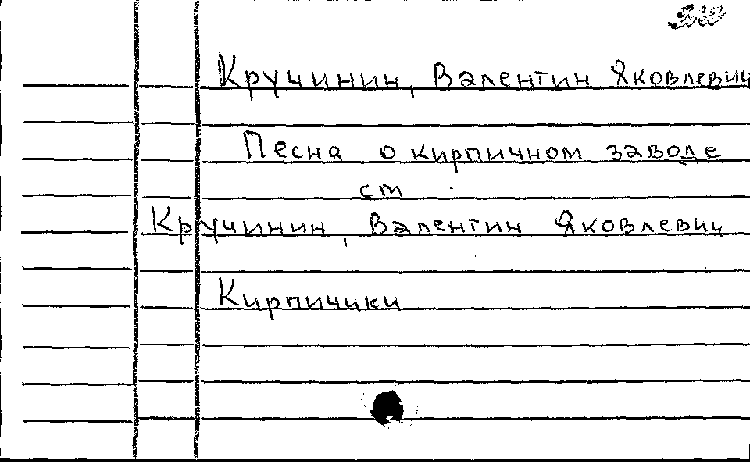 Кручинин, Валентин Яковлевич
Песня о кирпичном заводе
см
Кручинин, Валентин Яковлевич
Кирпичики